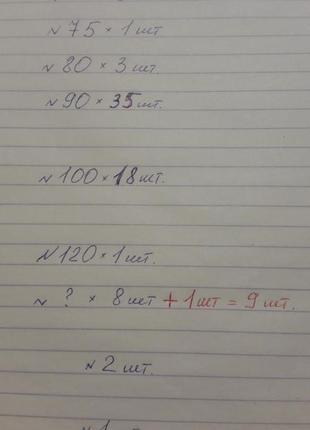 N 75 × 1 шт
N 80 × 3 шт.
N 90 × 35 шт.
N 100 × 18 шт.
N 120 × 1 шт.
N ? × 8 шт + 1 шт = 9 шт.
N 2 шт.